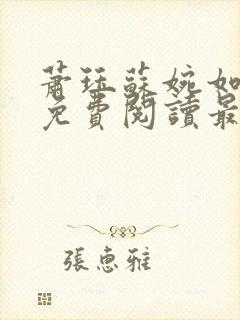 蕭珏蘇婉如
免費閱讀最
張惠雅